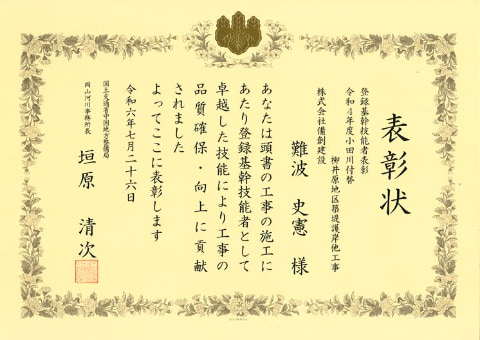 表彰状
登録基幹技能者表彰
令和4年度小田川付替 柳井原地区築堤護岸他工事
株式会社備創建設
難波 史憲 様
あなたは頭書の工事の施工に
あたり登録基幹技能者として
卓越した技能により工事の
品質確保・向上に貢献
されました
よってここに表彰します
令和六年七月二十六日
国土交通省中国地方整備局
岡山河川事務所長
垣原 清次